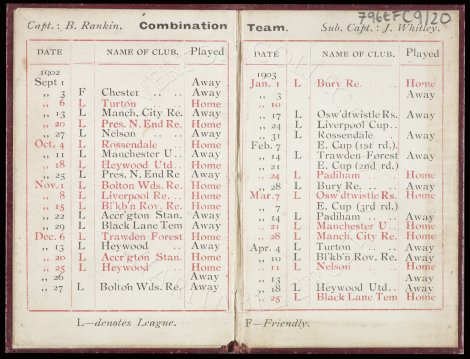 Capt.: B. Rankin. Combination
DATE NAME OF CLUB. Played
1902
Sept 1 Away
„ 3 F Chester .. .. Away
„ 6 L Turton .. Home
„ 13 L Manch. City Re. Away
„ 20 L Pres. N. End Re. Home
„ 27 L Nelson .. .. Away
Oct. 4 L Rossendale Home
„ 11 L Manchester U .. Away
„ 18 L Heywood Utd .. Home
„ 25 L Pres. N. End Re Away
Nov. 1 L Bolton Wds. Re. Home
„ 8 L Liverpool Re. .. Home
„ 15 L Bl'kb'n Rov. Re. Home
„ 22 L Accr'gton Stan. Away
„ 20 L Black Lane Tem Away
Dec. 6 L Trawden Forest Home
„ 13 L Heywood .. Away
„ 20 L Accr'gton Stan. Home
„ 25 L Heywood Home
„ 26 Away
„ 27 L Bolto'n Wds. Re. Away
L—denotes League.
Team. Sub. Capt.: J. Whitley.
796EFC9/20
DATE NAME OF CLUB. Played
1903
Jan. 1 L Bury Re. .. Home
„ 3 Away
„ 10
„ 17 L Osw'dtwistle Rs. Away
„ 24 L Liverpool Cup ..
„ 31 L Rossendale Away
Feb. 7 E. Cup (1st rd.).
„ 14 L Trawden Forest Away
„ 21 E. Cup (2nd rd.)
„ 24 L Padiham .. Home
„ 28 L Bury Re. .. .. Away
Mar. 7 L Osw'dtwistle Rs. Home
„ 7 E. Cup (3rd rd.)
„ 14 L Padiham .. .. Away
„ 21 L Manchester U .. Home
„ 28 L Manch. City Re. Home
Apr. 4 L Turton .. .. Away
„ 10 L Bl'kb'n Rov. Re. Away
„ 11 L Nelson .. Home
„ 13 Away
„ 18 L Heywood Utd .. Away
„ 25 L Black Lane Tem Home
F—Friendly.